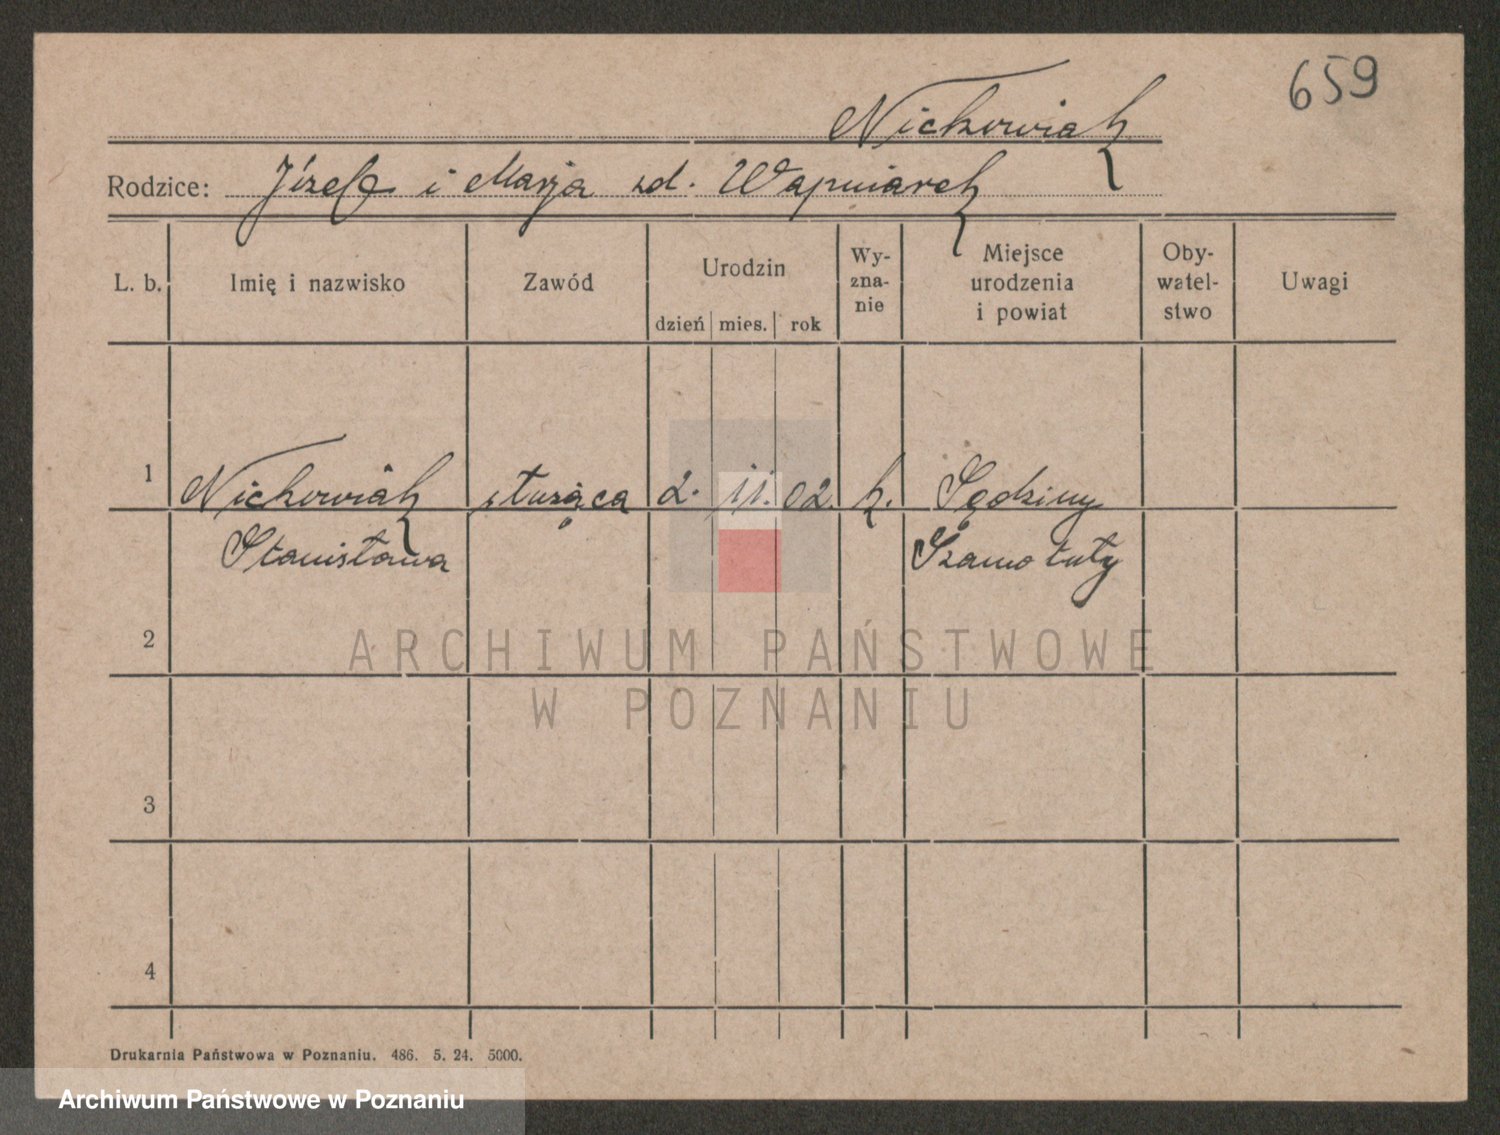 659
Nickowiak
Rodzice: Józef i Marja zd. Wapniarek
L. b. Imię i nazwisko Zawód Urodzin dzień mies. rok Wy- zna- nie Miejsce urodzenia i powiat Oby- watel- stwo Uwagi
1 Nickowiak służąca 2. 11. 02. k. Sędziny
Stanisława Szamotuły
2
ARCHIWUM PAŃSTWOWE
W POZNANIU
3
4
Drukarnia Państwowa w Poznaniu. 486. 5. 24. 5000.
Archiwum Państwowe w Poznaniu